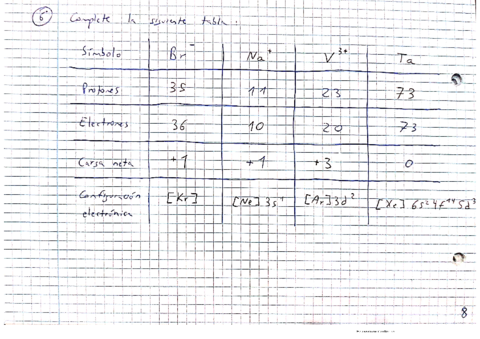 6 Complete la siguiente tabla.
Símbolo Br⁻ Na⁺ V³⁺ Ta
Protones 35 11 23 73
Electrones 36 10 20 73
Carga neta +1 +1 +3 0
Configuración electrónica [Kr] [Ne] 3s¹ [Ar] 3d² [Xe] 6s² 4f¹⁴ 5d³
8